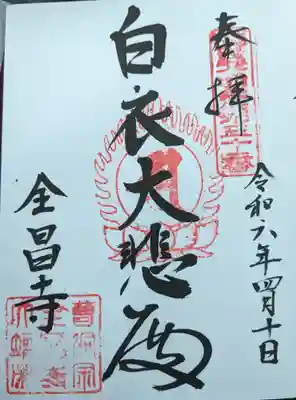 奉拝
令和六年四月十日
白衣大悲殿
全昌寺